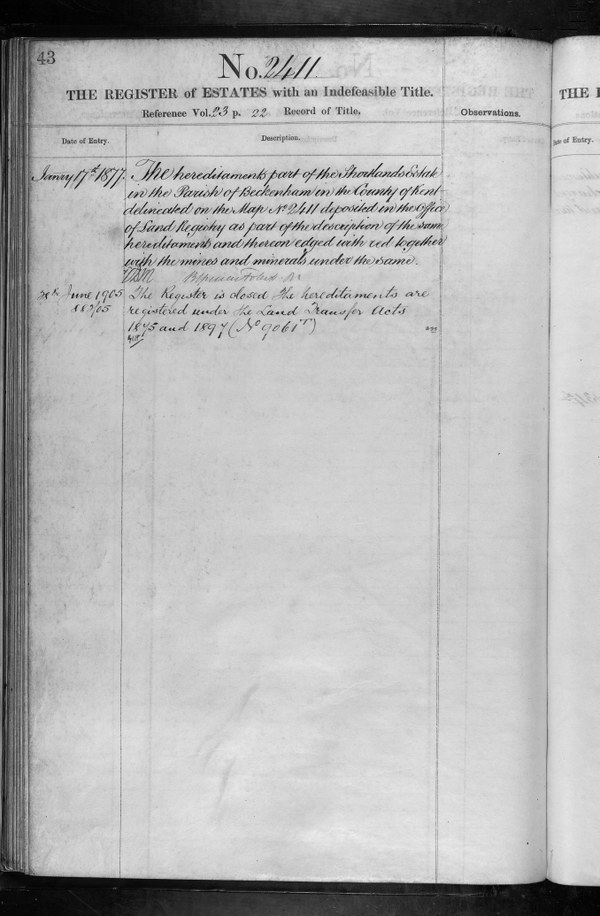 43
No. 2411
THE REGISTER of ESTATES with an Indefeasible Title.
Reference Vol. 23 p. 22 Record of Title.
Observations.
Date of Entry.
Description.
Janry 17th 1877.
The hereditaments part of the Shortlands Estate
in the Parish of Beckenham in the County of Kent
delineated on the Map No 2411 deposited in the Office
of Land Registry as part of the description of the same
hereditaments and thereon edged with red together
with the mines and minerals under the same.
28th June 1905
The Register is closed the hereditaments are
registered under the Land Transfer Acts
1875 and 1897 (No 9061)
THE
Date of Entry.